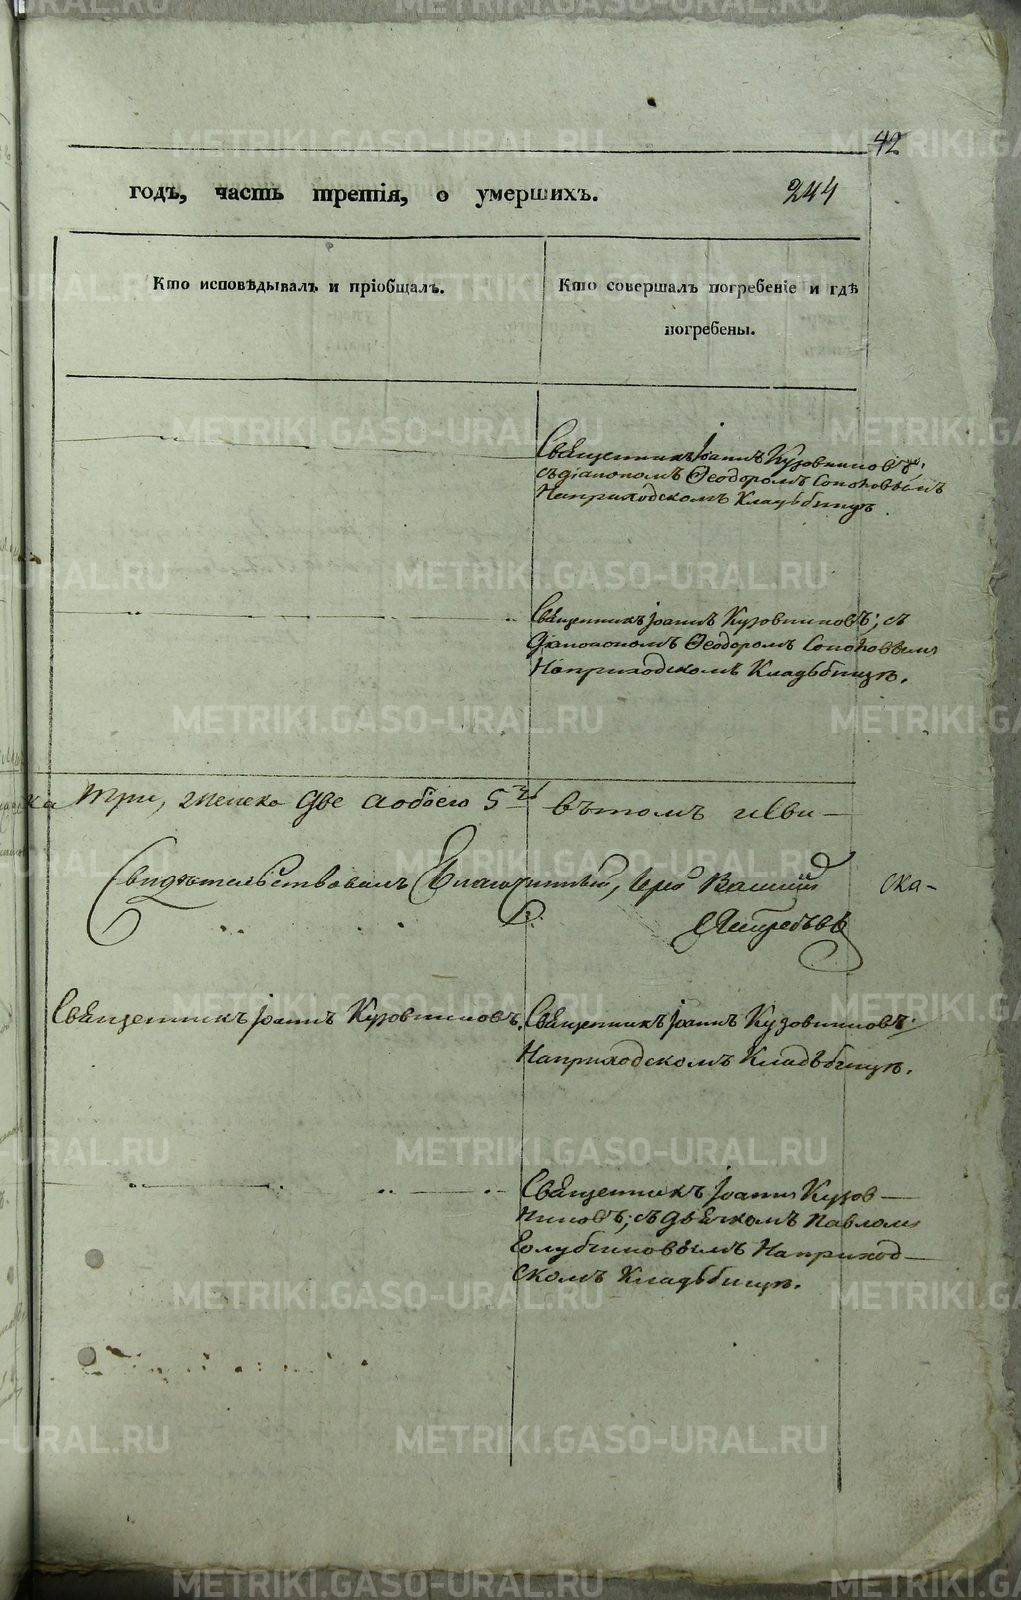 42
годъ, часть третія, о умершихъ.
244
Кто исповѣдывалъ и пріобщалъ.
Кто совершалъ погребеніе и гдѣ
погребены.
Священникъ Іоаннъ Кузовниковъ,
съ діакономъ Ѳеодоромъ Сопоховымъ
Наприходскомъ Кладьбищѣ
Священникъ Іоаннъ Кузовниковъ; съ
Діакономъ Ѳеодоромъ Сопоховымъ
Наприходскомъ Кладьбищѣ.
ка три, женска две а обоего 5ть въ томъ и Сви-
Свидѣтельствовалъ Благочинный, Іерей Василій
ска-
Ястребовъ
Священникъ Іоаннъ Кузовниковъ.
Священникъ Іоаннъ Кузовниковъ.
Наприходскомъ Кладьбищѣ.
Священникъ Іоаннъ Кузов-
никовъ; съ дьячкомъ Павломъ
Голубчиковымъ Наприход-
скомъ Кладьбищѣ.
METRIKI.GASO-URAL.RU